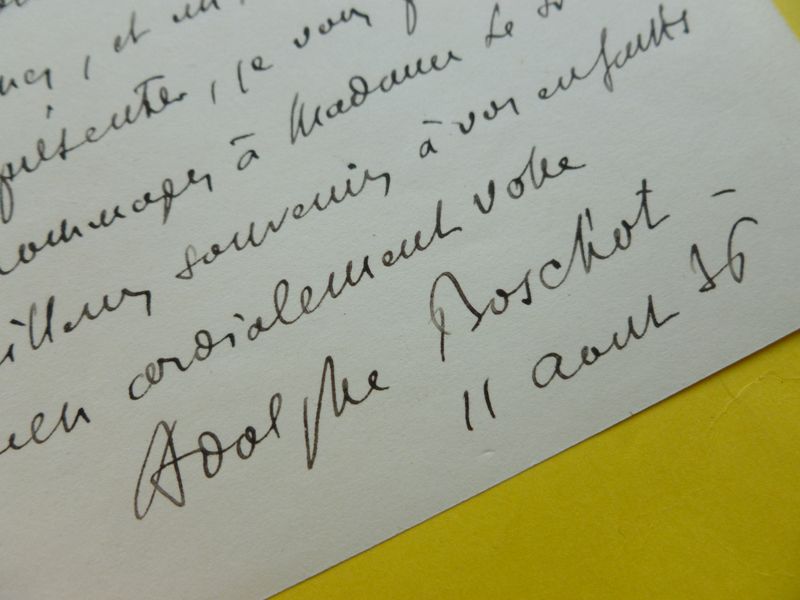 , et
présenter, je vous
hommages à Madame Le
meilleurs souvenirs à vos enfants
bien cordialement votre
Adolphe Boschot -
11 août 36